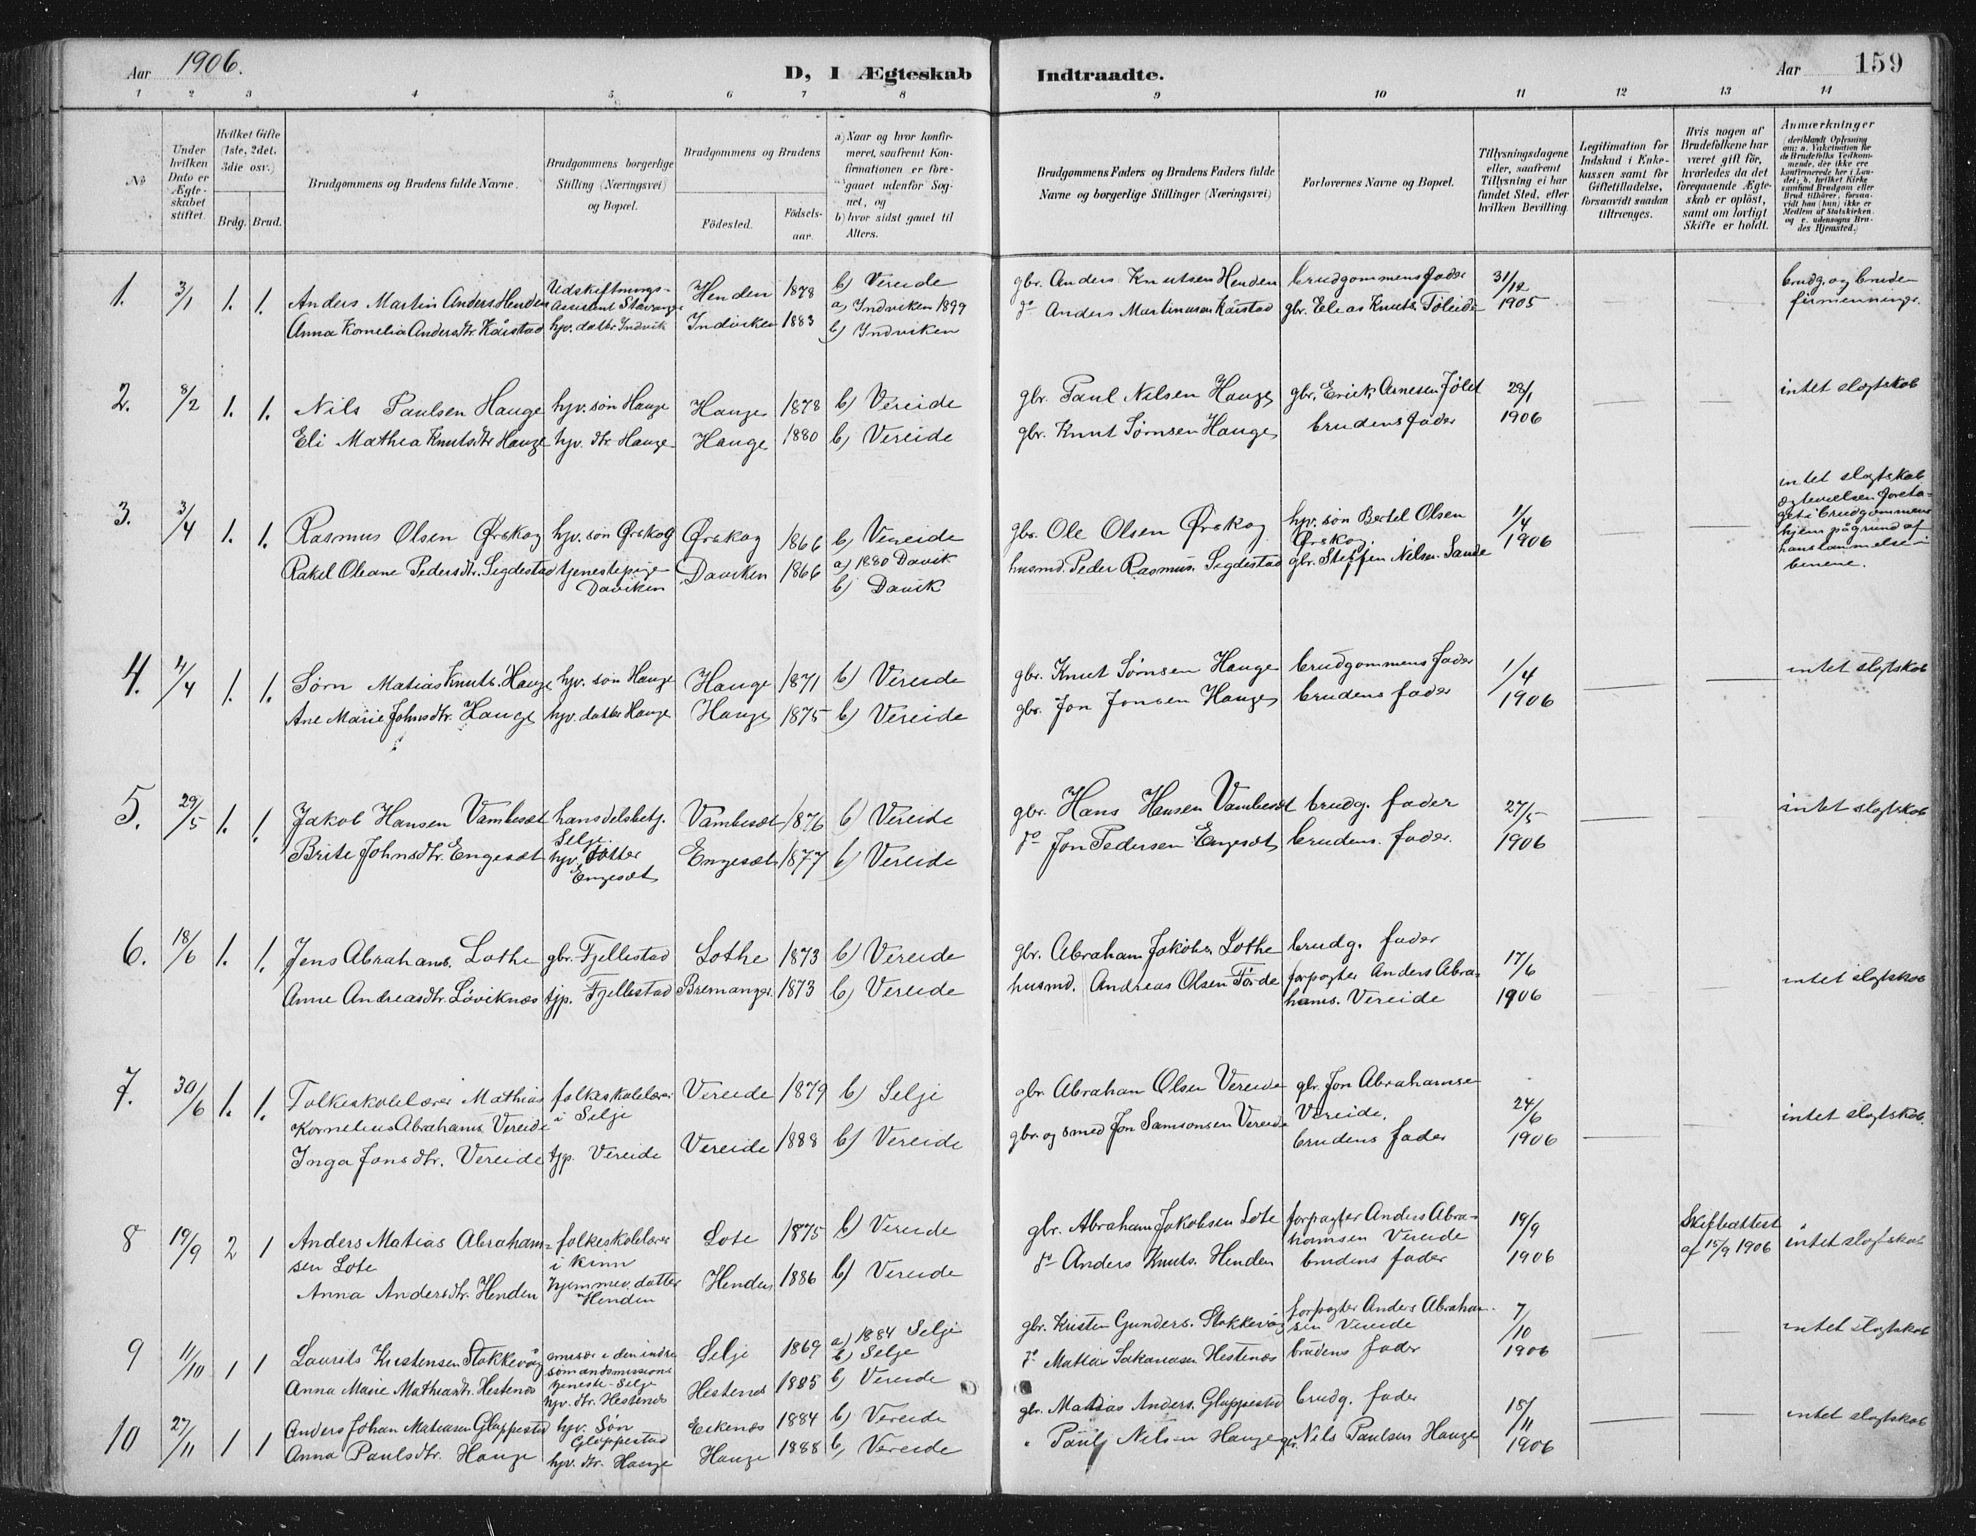 Aar 1906.
D, I Ægteskab Indtraadte.
Aar 159
1 2 3 4 5 6 7 8 9 10 11 12 13 14
No
Under hvilken Dato er Ægteskabet stiftet.
Hvilket Gifte (1ste, 2det, 3die osv.)
Brdg. Brud.
Brudgommens og Brudens fulde Navne.
Brudgommens borgerlige Stilling (Næringsvei) og Bopæl.
Brudgommens og Brudens
Fødested.
Fødselsaar.
a) Naar og hvor konfirmeret, saafremt Konfirmationen er foregaaet udenfor Sognet, og
b) hvor sidst gaaet til Alters.
Brudgommens Faders og Brudens Faders fulde Navne og borgerlige Stillinger (Næringsvei)
Forlovernes Navne og Bopæl.
Tillysningsdagene eller, saafremt Tillysning ei har fundet Sted, efter hvilken Bevilling
Legitimation for Indskud i Enkekassen samt for Giftetilladelse, forsaavidt saadan tiltrænges.
Hvis nogen af Brudefolkene har været gift før, hvorledes da det foregaaende Ægteskab er opløst, samt om lovligt Skifte er holdt.
Anmærkninger
(deriblandt Oplysning om: a. Vakcination for de Brudefolks Vedkommende, der ikke ere konfirmerede her i Landet; b. hvilket Kirkesamfund Brudgom eller Brud tilhører, forsaavidt han (hun) ikke er Medlem af Statskirken, og c. udensogns Brudes Hjemsted.)
1. 3/1 1. 1. Anders Martin Anders. Henden Udskiftnings- Assistent Stavanger Henden 1878 b) Vereide gbr. Anders Knutsen Henden brudgommens fader 31/12 1905 brudg. og bruden firmenninge.
Anna Kornelia Andersdtr. Kårstad hjv. datter Indvik Indviken 1883 a) Indviken 1899 b) Indviken do Anders Martinusen Kårstad gbr. Elias Knuts. Töleide
2. 8/2 1. 1. Nils Paulsen Hauge hjv. søn Hauge Hauge 1878 b) Vereide gbr. Paul Nilsen Hauge gbr. Erik Arnesen 28/1 1906 intet slegtskab
Eli Mathea Knutsdtr Hauge hjv. dtr. Hauge Hauge 1880 b) Vereide gbr. Knut Sørnsen Hauge brudens fader
3. 3/4 1. 1. Rasmus Olsen Ørskog hjv. søn Ørskog Ørskog 1866 b) Vereide gbr. Ole Olsen Ørskog hjv. søn Bertel Olsen Ørskog. 1/4 1906 intet slegtskab ægtevielsen foretaget i brudgommens hjem på grund af hans lammelse i benene.
Rakel Oleane Pedersdtr. Segdestad tjenestepige Daviken Daviken 1866 a) 1880 Davik b) Davik husmd. Peder Rasmus. Segdestad gbr. Steffen Nilsen Sande
4. 4/4 1. 1. Sørn Matias Knuts. Hauge hjv. søn Hauge Hauge 1871 b) Vereide gbr. Knut Sørnsen Hauge brudgommens fader 1/4 1906 intet slegtskab
Ane Marie Johnsdtr. Hauge hjv. datter Hauge Hauge 1875 b) Vereide gbr. Jon Jonsen Hauge brudens fader
5. 29/5 1. 1. Jakob Hansen Vambesæt handelsbetj. Selje. Vambesæt 1876 b) Vereide gbr. Hans Hansen Vambesæt brudg. fader 27/5 1906 intet slegtskab
Brite Johnsdtr. Engesæt hjv. datter Engesæt Engesæt 1877 b) Vereide do Jon Pedersen Engesæt brudens fader.
6. 18/6 1. 1. Jens Abrahams. Lothe gbr. Fjellestad Lothe 1873 b) Vereide gbr. Abraham Jakobs. Lothe brudg. fader 17/6 1906 intet slegtskab
Anne Andreasdtr. Løviknæs tjp. Fjellestad Bremanger 1873 b) Vereide husmd. Andreas Olsen Førde forpagter Anders Abrahams. Vereide
7. 30/6 1. 1. Folkeskolelærer Mathias Kornelius Abrahams. Vereide folkeskolelærer i Selje Vereide 1879 b) Selje gbr. Abraham Olsen Vereide gbr. Jon Abrahamse Vereide. 24/6 1906 intet slegtskab.
Inga Jonsdtr. Vereide tjp. Vereide Vereide 1888 b) Vereide gbr. og smed Jon Samsonsen Vereide brudens fader
8 19/9 2 1 Anders Matias Abrahamsen Lote folkeskolelærer i Kinn Lote 1875 b) Vereide gbr. Abraham Jakobsen Lote forpagter Anders Abrahamsen Vereide 19/9 1906 Skifteattest af 15/9 1906 intet slegtskab
Anna Andersdtr. Henden hjemmev. datter Henden Henden 1886 b) Vereide do Anders Knuts. Henden brudens fader
9 11/10 1 1 Laurits Kristensen Stokkevåg i den indre sømandsmissions tjeneste - Selje Selje 1869 a) 1884 Selje b) Selje gbr. Kristen Gunders. Stokkevåg forpagter Anders Abrahamsen Vereide 7/10 1906 intet slegtskab
Anna Marie Mathiasdtr. Hestenæs hjv. dtr. Hestenæs Hestenæs 1885 b) Vereide do Matias Sakariasen Hestenæs brudens fader
10 27/11 1 1 Anders Johan Matiasen Gloppestad hjv. Søn Gloppestad Eikenæs 1884 b) Vereide gbr. Matias Anders. Gloppestad brudg. fader 18/11 1906 intet slegtskab
Anna Paulsdtr. Hauge hjv. dtr. Hauge Hauge 1888 b) Vereide " Paul Nilsen Hauge gbr. Nils Paulsen Hauge